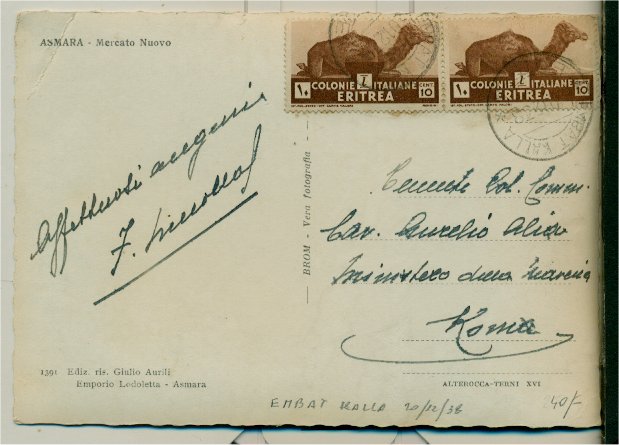 ASMARA - Mercato Nuovo
COLONIE ITALIANE
ERITREA
١٠
CENT
10
COLONIE ITALIANE
ERITREA
١٠
CENT
10
Affettuosi auguri
F.
BROM - Vera fotografia
Tenente Col. Comm.
Cav. Aurelio Alia
Ministero della Marina
Roma
1391 Ediz. ris. Giulio Aurili
Emporio Lodoletta - Asmara
ALTEROCCA-TERNI XVI
EMBAT KALLA 20/12/38
40/-